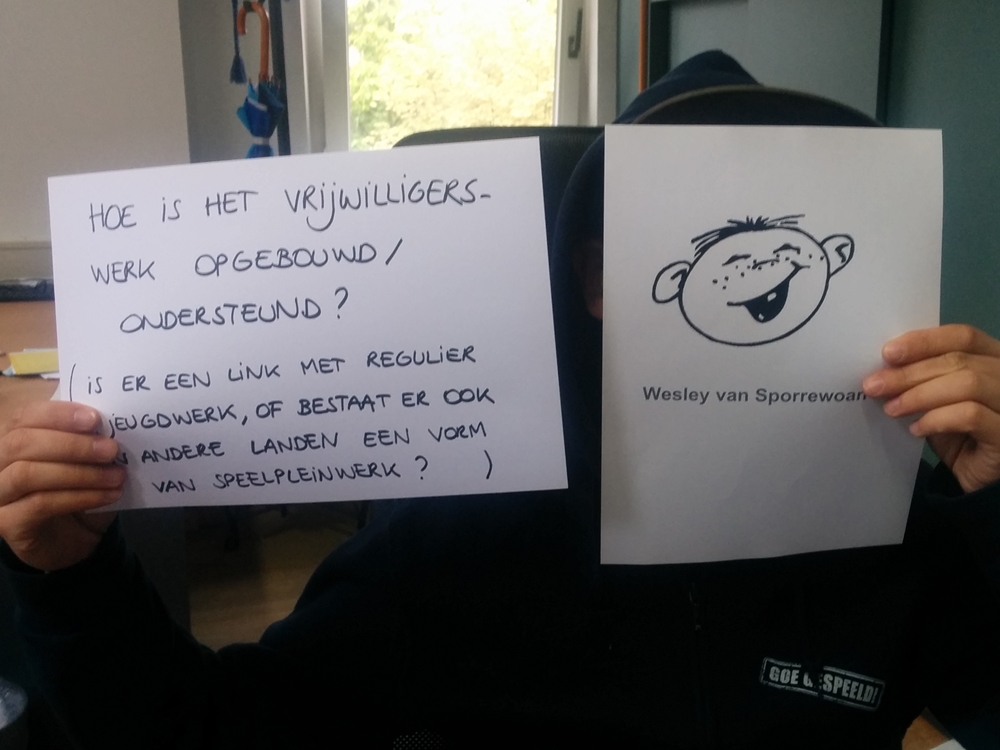 HOE IS HET VRIJWILLIGERS-
WERK OPGEBOUWD/
ONDERSTEUND?
(IS ER EEN LINK MET REGULIER
JEUGDWERK, OF BESTAAT ER OOK
ANDERE LANDEN EEN VORM
VAN SPEELPLEINWERK? )
Wesley van Sporrewoan
GOE GESPEELD!